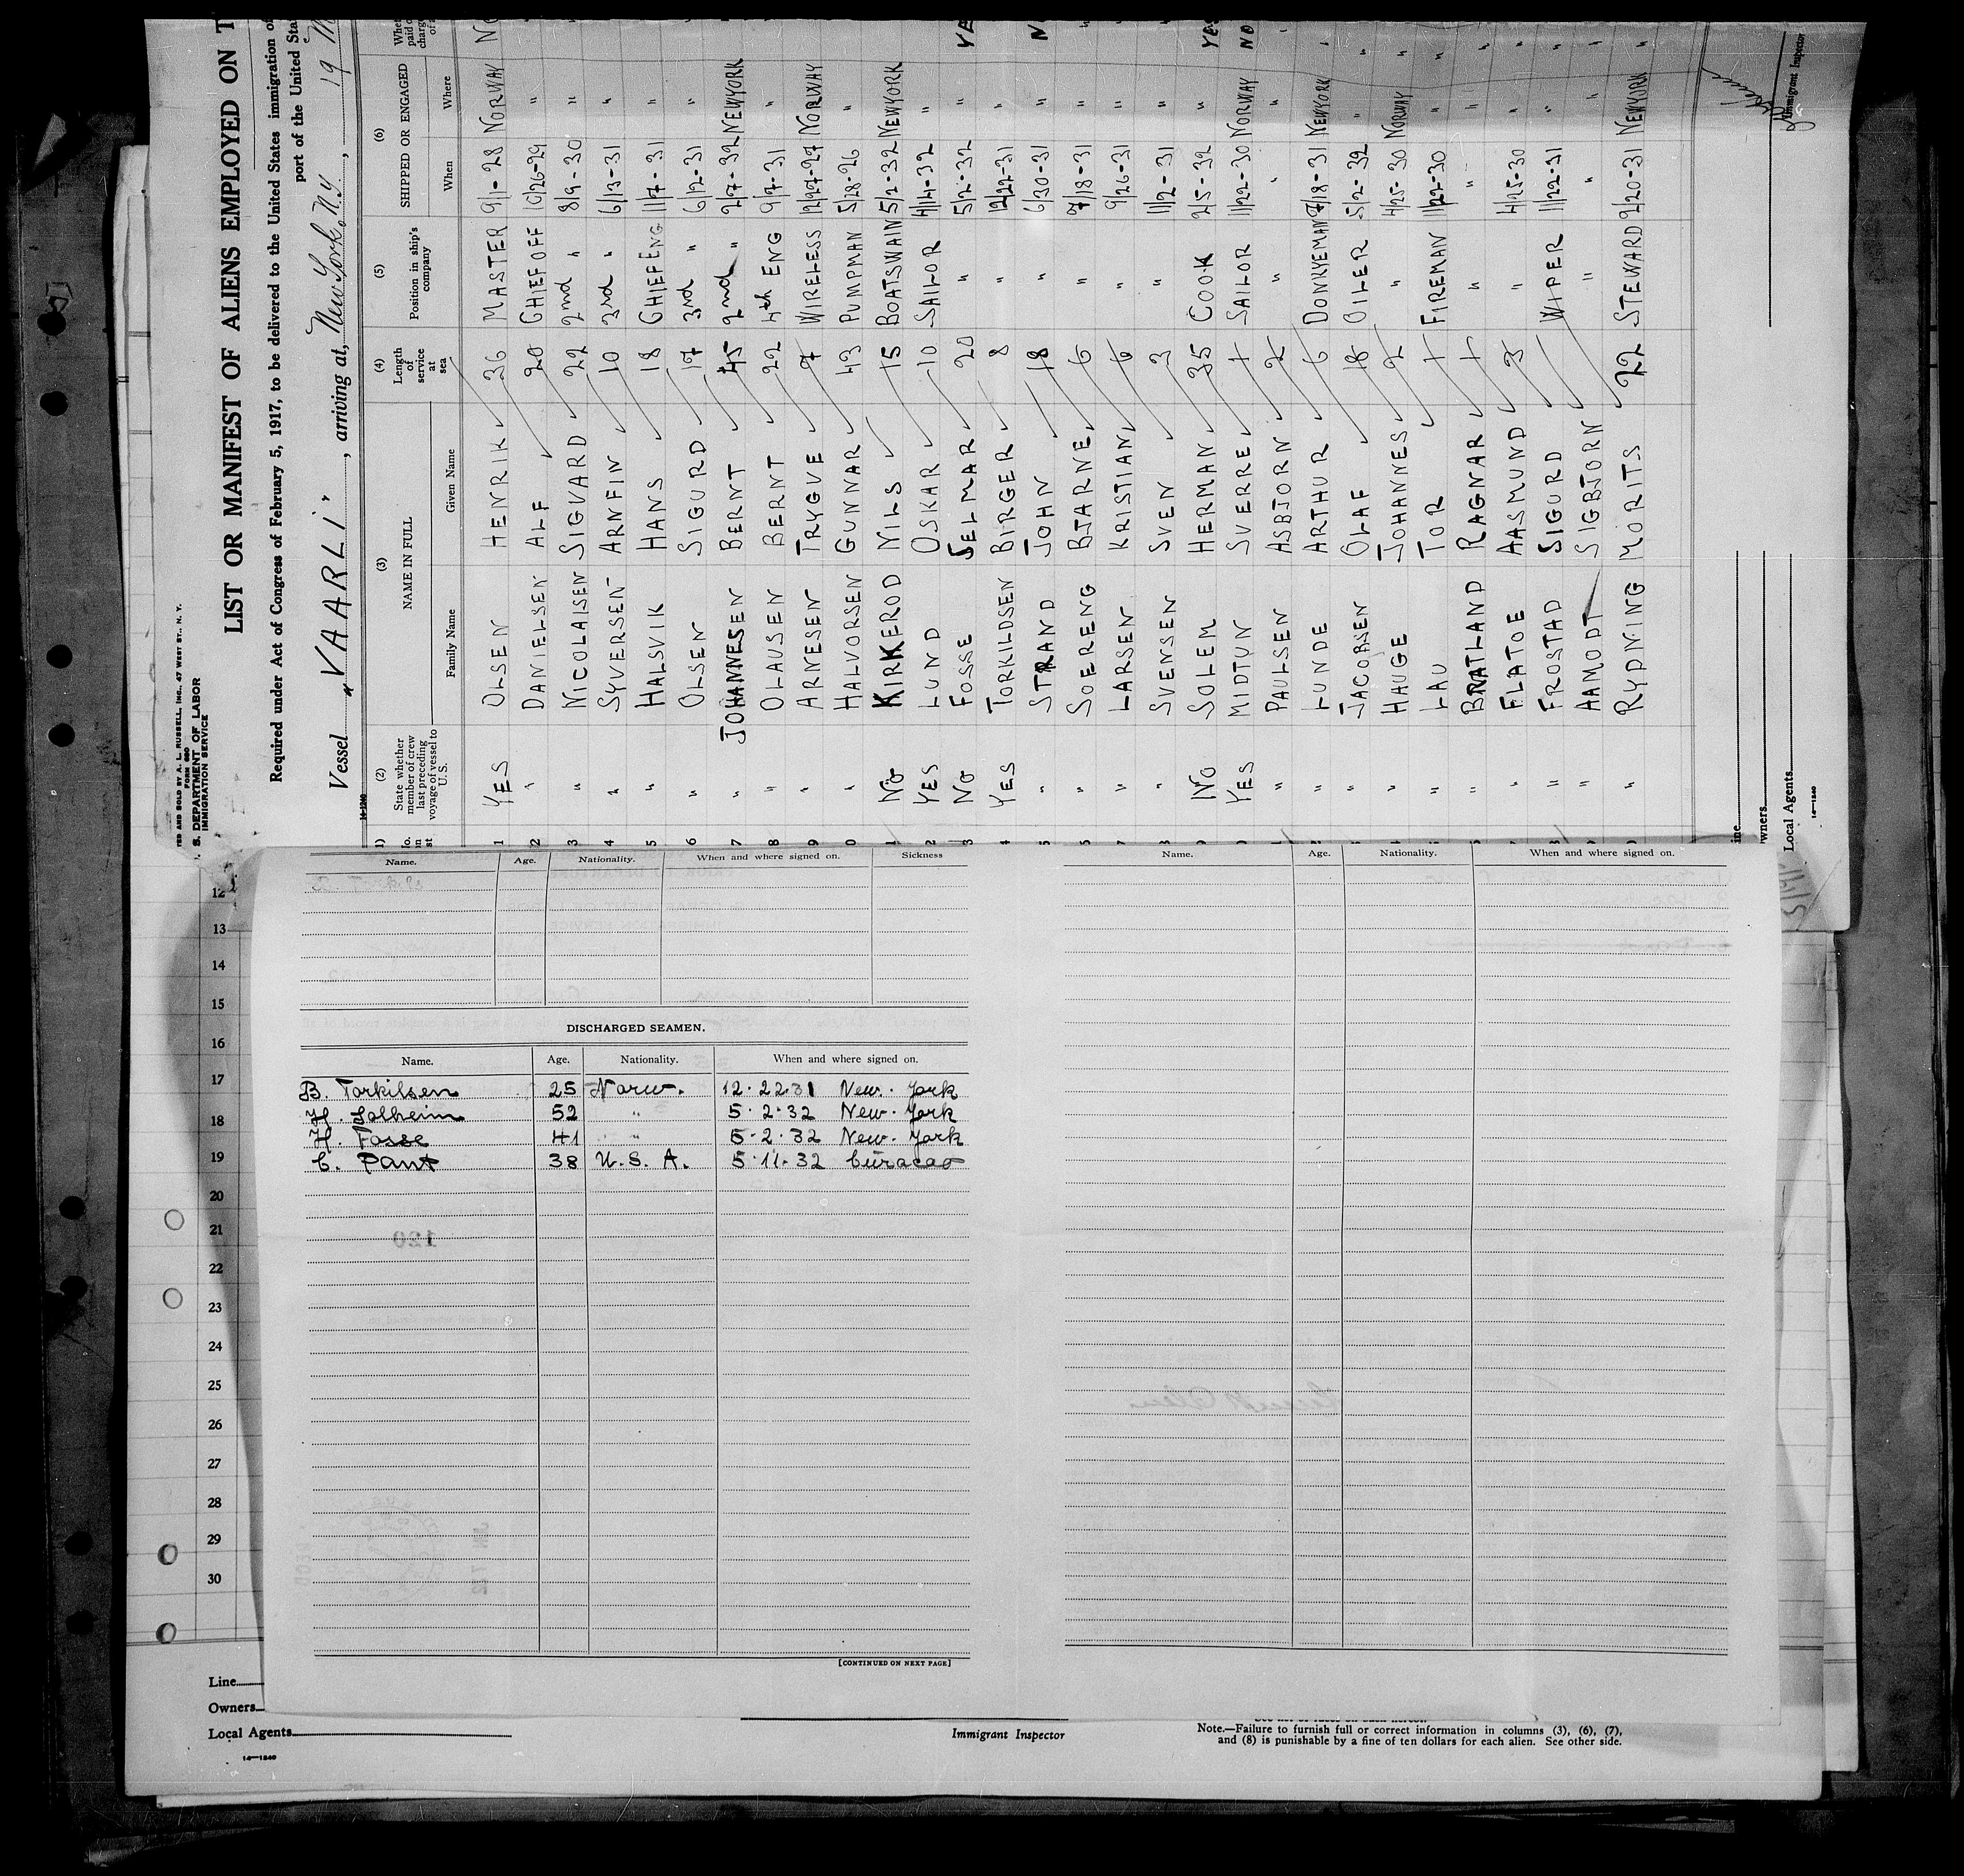 TED AND SOLD BY A. L. RUSSELL, INC., 47 WEST ST., N. Y.
FORM 680
S. DEPARTMENT OF LABOR
IMMIGRATION SERVICE
LIST OR MANIFEST OF ALIENS EMPLOYED ON T
Required under Act of Congress of February 5, 1917, to be delivered to the United States immigration of
port of the United Sta
Vessel „VAARLI”, arriving at, New York. N.Y., 19
14-1240
(2) State whether member of crew last preceding voyage of vessel to U. S. (3) NAME IN FULL Family Name Given Name (4) Length of service at sea (5) Position in ship's company (6) SHIPPED OR ENGAGED When Where
1 YES OLSEN HENRIK 36 MASTER 9/1-28 NORWAY
2 " DANIELSEN ALF 20 CHIEF OFF 10/26-29 "
3 " NICOLAISEN SIGVARD 22 2nd " 8/9-30 "
4 " SYVERSEN ARNFIN 10 3rd " 6/13-31 "
5 " HALSVIK HANS 18 CHIEF ENG 11/7-31 "
6 " OLSEN SIGURD 17 3rd " 6/12-31 "
7 " JOHANNESEN BERNT 45 2nd " 2/7-32 NEWYORK
8 " OLAUSEN BERNT 22 4th ENG 9/7-31 "
9 " ARNESEN TRYGVE 7 WIRELESS 12/27-27 NORWAY
0 " HALVORSEN GUNNAR 43 PUMPMAN 5/28-26 "
1 NO KIRKEROD NILS 15 BOATSWAIN 5/2-32 NEWYORK
2 YES LUND OSKAR 10 SAILOR 4/14-32 "
3 NO FOSSE SELMAR 20 " 5/2-32 "
4 YES TORKILDSEN BIRGER 8 " 12/22-31 "
5 " STRAND JOHN 18 " 6/30-31 "
" SOERENG BJARNE 6 " 7/18-31 "
7 " LARSEN KRISTIAN 6 " 9/26-31 "
8 " SVENSEN SVEN 3 " 11/2-31 "
9 NO SOLEM HERMAN 35 COOK 2/5-32 "
0 YES MIDTUN SVERRE SAILOR 11/22-30 NORWAY
" PAULSEN ASBJORN 2 " " "
" LUNDE ARTHUR 6 DONKYEMAN 7/18-31 NEWYORK
" JACOBSEN OLAF 18 OILER 5/2-32 "
" HAUGE JOHANNES 2 " 4/25-30 NORWAY
" LAU TOR FIREMAN 11/22-30 "
" BRATLAND RAGNAR " " "
" FLATOE AASMUND 3 " 4/25-30 "
" FROSTAD SIGURD WIPER 11/22-31 "
" AAMODT SIGBJORN " " "
" RYDNING MORITS 22 STEWARD 2/20-31 NEWYORK
Local Agents
14-1240
Immigrant Inspector
Name. Age. Nationality. When and where signed on. Sickness
DISCHARGED SEAMEN.
Name. Age. Nationality. When and where signed on.
B. Torkilsen 25 Norw. 12.22.31 New. York
H. Solheim 52 " 5.2.32 New. York
H. Fosse 41 " 5.2.32 New. York
C. Pant 38 U.S.A. 5.11.32 Curacao
[CONTINUED ON NEXT PAGE]
Name. Age. Nationality. When and where signed on.
12
13
14
15
16
17
18
19
20
21
22
23
24
25
26
27
28
29
30
Line
Owners
Local Agents
14-1240
Immigrant Inspector
Note.—Failure to furnish full or correct information in columns (3), (6), (7),
and (8) is punishable by a fine of ten dollars for each alien. See other side.